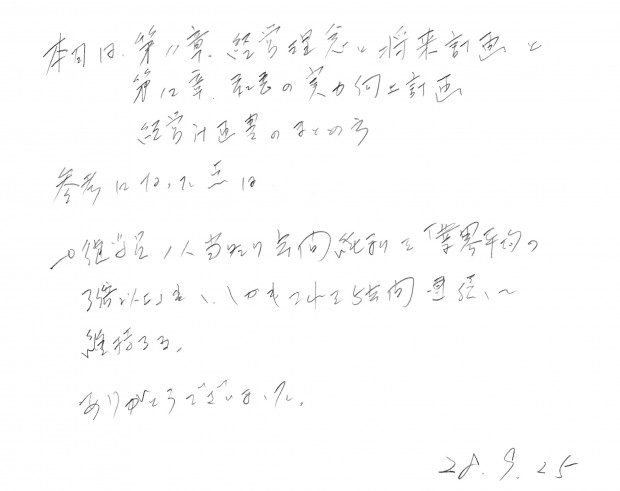 本日は、第11章、経営理念と将来計画と
第12章、社長の実力向上計画
経営計画書のまとめ方
参考になった点は
従業員1人当たり年間純利を「業界平均の
3倍以上も、しかもそれを5年間連続で
維持する。
ありがとうございました。
28.9.25